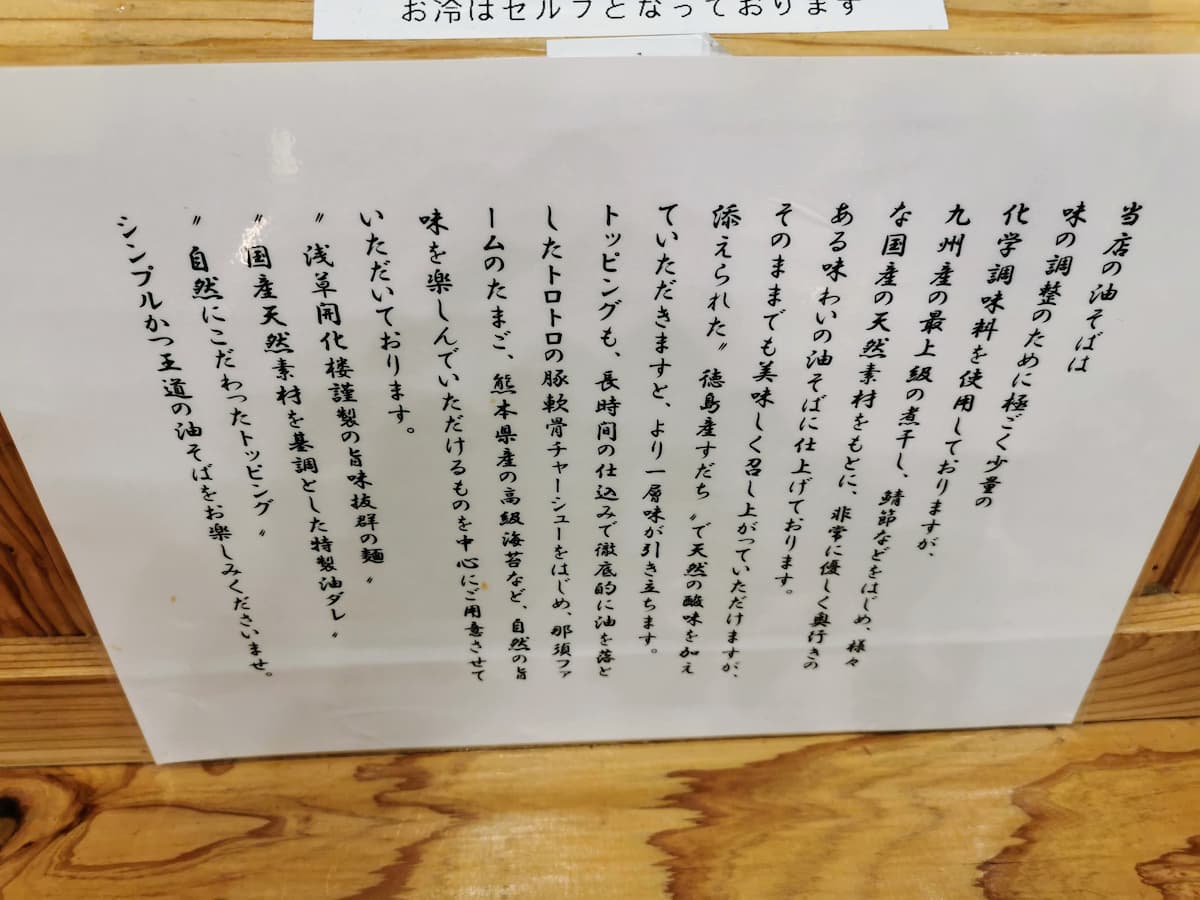 お冷はセルフとなっております
当店の油そばは
味の調整のために極ごく少量の
化学調味料を使用しておりますが、
九州産の最上級の煮干し、鯖節などをはじめ、様々
な国産の天然素材をもとに、非常に優しく奥行きの
ある味わいの油そばに仕上げております。
そのままでも美味しく召し上がっていただけますが、
添えられた〝徳島産すだち〟で天然の酸味を加え
ていただきますと、より一層味が引き立ちます。
トッピングも、長時間の仕込みで徹底的に油を落と
したトロトロの豚軟骨チャーシューをはじめ、那須ファ
ームのたまご、熊本県産の高級海苔など、自然の旨
味を楽しんでいただけるものを中心にご用意させて
いただいております。
〝浅草開化楼謹製の旨味抜群の麺〟
〝国産天然素材を基調とした特製油ダレ〟
〝自然にこだわったトッピング〟
シンプルかつ王道の油そばをお楽しみくださいませ。